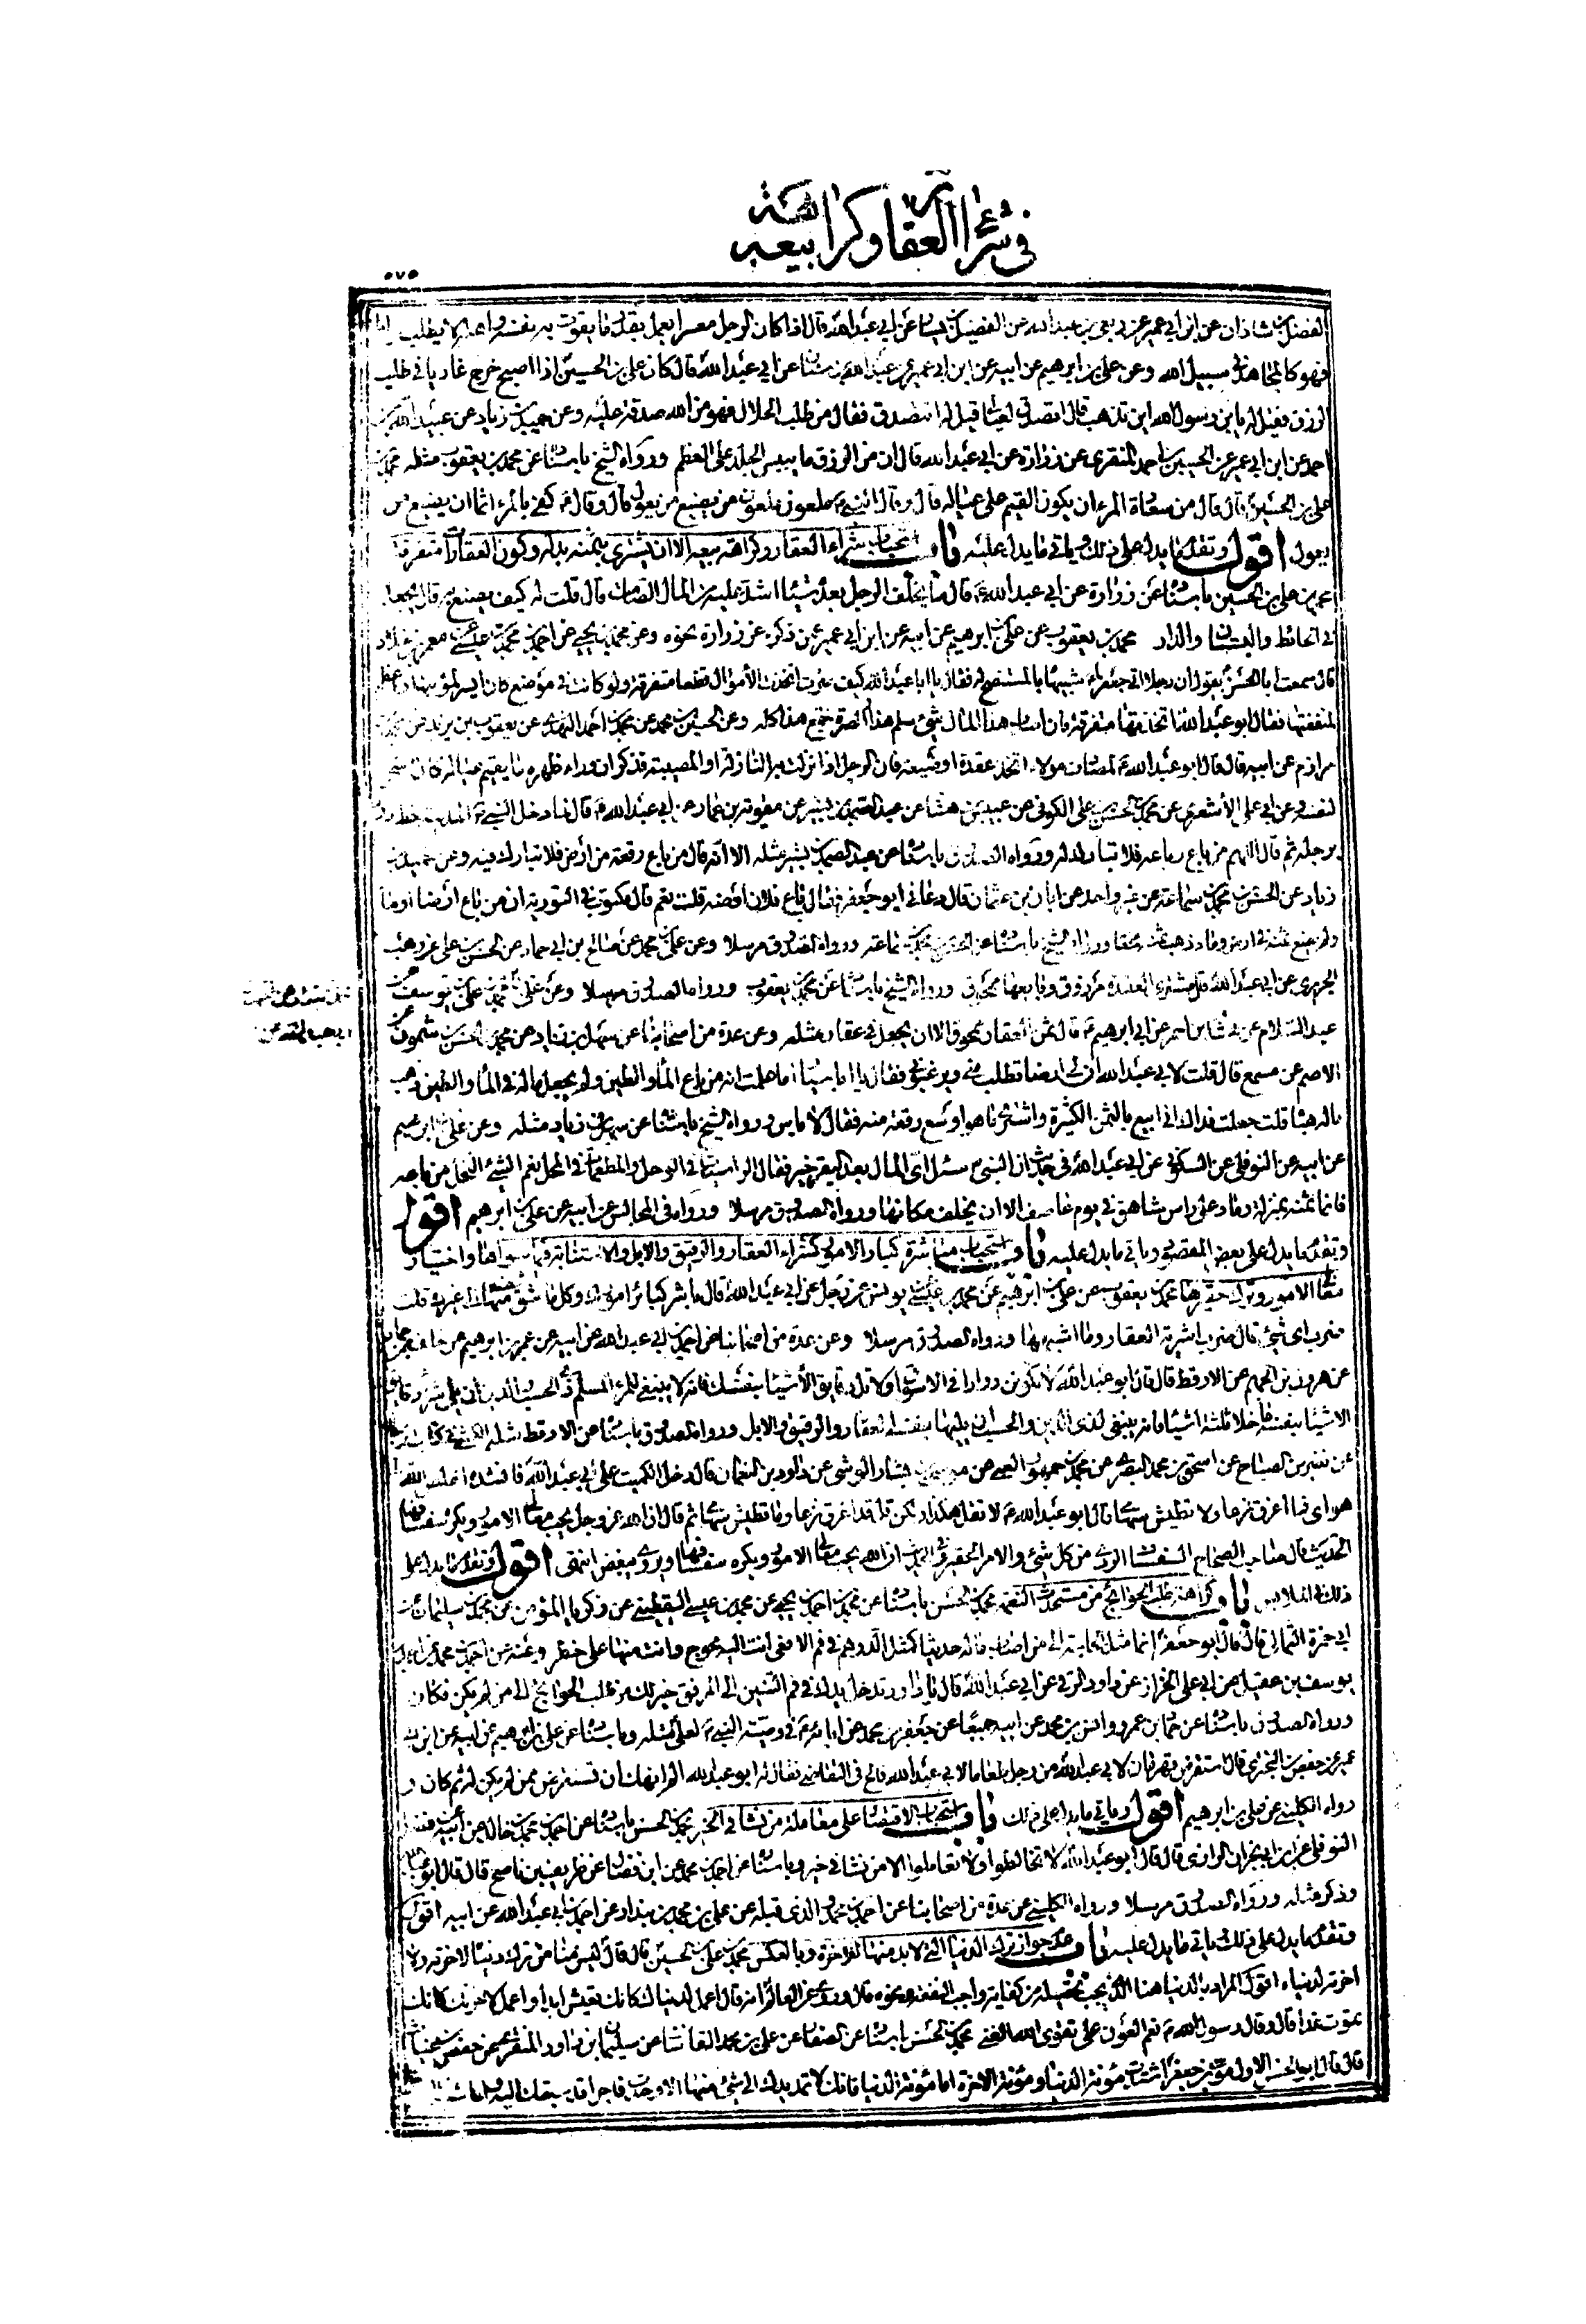 في شراء العقار وكراهة بيعه
٥٧٥
الفضل بن شاذان عن ابن ابي عمير عن ربعي بن عبد الله عن الفضيل بن يسار عن ابي عبد الله قال اذا كان الرجل معسرا يعمل بقدر ما يقوت به نفسه واهله لا يطلب
فهو كالمجاهد في سبيل الله وعن علي بن ابرهيم عن ابيه عن ابن ابي عمير عن عبد الله بن سنان عن ابي عبد الله قال كان علي بن الحسين اذا اصبح خرج غاديا في طلب
الرزق فقيل له يا بن رسول الله اين تذهب قال اتصدق لعيالي قيل له اتتصدق فقال من طلب الحلال فهو من الله صدقة عليه وعن حميد بن زياد عن عبيد الله بن
احمد عن ابن ابي عمير عن الحسين بن احمد المنقري عن زرارة عن ابي عبد الله قال ان من الرزق ما ييبس الجلد على العظم ورواه الشيخ باسناده عن محمد بن يعقوب مثله محمد بن
علي بن الحسين قال قال من سعادة المرء ان يكون القيم على عياله قال وقال النبي ملعون ملعون من يضيع من يعول قال وقال كفى بالمرء اثما ان يضيع من
يعول اقول وتقدم ما يدل على ذلك وياتي ما يدل عليه باب استحباب شراء العقار وكراهة بيعه الا ان يشتري بثمنه بدله وكون العقارات متفرقة
محمد بن علي بن الحسين باسناده عن زرارة عن ابي عبد الله قال ما يخلف الرجل بعده شيئا اشد عليه من المال الصامت قال قلت له كيف يصنع به قال يجعله
في الحائط والبستان والدار محمد بن يعقوب عن علي بن ابرهيم عن ابيه عن ابن ابي عمير عمن ذكره عن زرارة نحوه وعن محمد بن يحيى عن احمد بن محمد بن عيسى عن معمر بن خلاد
قال سمعت ابا الحسن يقول ان رجلا اتى جعفرا شبيها بالمستنصح له فقال يا ابا عبد الله كيف صرت اتخذت الأموال قطعا متفرقة ولو كانت في موضع كان ايسر لمؤنتها واعظم
لمنفعتها فقال ابو عبد الله اتخذتها متفرقة فان اصاب هذا المال شيء سلم هذا والصرة تجمع هذا كله وعن الحسين بن محمد عن محمد بن احمد النهدي عن يعقوب بن يزيد عن محمد بن
مرازم عن ابيه قال قال ابو عبد الله لمصادف مولاه اتخذ عقدة او ضيعة فان الرجل اذا نزلت به النازلة او المصيبة فذكر ان وراء ظهره ما يقيم عياله كان اسخى
لنفسه وعن ابي علي الأشعري عن محمد بن الحسن بن علي الكوفي عن عبيس بن هشام عن عبد الصمد بن بشير عن معوية بن عمار عن ابي عبد الله قال لما دخل النبي المدينة خط دورها
برجله ثم قال اللهم من باع رباعه فلا تبارك له ورواه الصدوق باسناده عن عبد الصمد بن بشير مثله الا انه قال من باع رقعة من ارض فلا تبارك فيه وعن حميد بن
زياد عن الحسن بن محمد بن سماعة عن غير واحد عن ابان بن عثمان قال دعاني ابو جعفر فقال باع فلان ارضه قلت نعم قال مكتوب في التورية ان من باع ارضا او ماء
ولم يضع ثمنه في ارض وماء ذهب ثمنه محقا ورواه الشيخ باسناده عن الحسن بن محمد بن سماعة ورواه الصدوق مرسلا وعن علي بن محمد عن صالح بن ابي حماد عن الحسن بن علي عن وهب
الحريري عن ابي عبد الله قال مشتري العقدة مرزوق وبايعها ممحوق ورواه الشيخ باسناده عن محمد بن يعقوب ورواه الصدوق مرسلا وعن علي بن محمد عن علي بن يوسف عن
عبد السلام عن هشام بن احمر عن ابي ابرهيم قال ثمن العقار ممحوق الا ان يجعل في عقار مثله وعن عدة من اصحابنا عن سهل بن زياد عن محمد بن الحسن بن شمون عن
الاصم عن مسمع قال قلت لابي عبد الله ان لي ارضا تطلب مني ويرغبوني فقال يا ابا سيار اما علمت انه من باع الماء والطين ولم يجعل ماله في الماء والطين ذهب
ماله هباء قلت جعلت فداك اني ابيع بالثمن الكثير واشتري ما هو اوسع رقعة منه فقال لا باس ورواه الشيخ باسناده عن سهل بن زياد مثله وعن علي بن ابرهيم
عن ابيه عن النوفلي عن السكوني عن ابي عبد الله في حديث ان النبي سئل اي المال بعد البقر خير فقال الراسيات في الوحل والمطعمات في المحل نعم الشيء النخل من باعه
فانما ثمنه بمنزلة رماد على راس شاهق في يوم عاصف الا ان يخلف مكانها ورواه الصدوق مرسلا ورواه في المجالس عن ابيه عن علي بن ابرهيم اقول
وتقدم ما يدل على بعض المقصود وياتي ما يدل عليه باب استحباب مباشرة كبار الامور كشراء العقار والرقيق والابل والاستنابة فيما سواها واختيار
معالي الامور وترك حقيرها محمد بن يعقوب عن علي بن ابرهيم عن محمد بن عيسى عن يونس عن رجل عن ابي عبد الله قال باشر كبائر امورك وكل ما شف منها الى غيرك قلت
ضرب اي شيء قال ضرب اشرية العقار وما اشبهها ورواه الصدوق مرسلا وعن عدة من اصحابنا عن احمد بن ابي عبد الله عن ابيه عن عمر بن ابرهيم عن خلف بن حماد
عن هرون بن الجهم عن الارقط قال قال ابو عبد الله لا تكونن دوارا في الاسواق ولا تلي دقايق الأشياء بنفسك فانه لا ينبغي للمرء المسلم ذي الحسب والدين ان يلي شراء دقايق
الاشياء بنفسه ما خلا ثلثة اشياء فانه ينبغي لذي الدين والحسب ان يليها بنفسه العقار والرقيق والابل ورواه الصدوق باسناده عن الارقط مثله
عن نصر بن الصباح عن اسحق بن محمد البصري عن محمد بن جمهور العمي عن موسى بن بشار الوشي عن داود بن النعمان قال دخل الكميت على ابي عبد الله فانشده اخلص الله
هواي فما اغرق نزعا ولا تطيش سهامي قال ابو عبد الله لا تقل هكذا ولكن قل قد اغرق نزعا وما تطيش سهامي ثم قال ان الله عز وجل يحب معالي الامور ويكره سفسافها
الحديث قال صاحب الصحاح السفساف الردي من كل شيء والامر الحقير وفي الحديث ان الله يحب معالي الامور ويكره سفسافها ويروى يبغض انتهى اقول وتقدم ما يدل على
ذلك في الملابس باب كراهة طلب الحوائج من مستحدث النعمة محمد بن الحسن باسناده عن محمد بن احمد بن يحيى عن محمد بن عيسى اليقطيني عن زكريا المؤمن عن محمد بن سليمان عن
ابي حمزة الثمالي قال قال ابو جعفر انما مثل الحاجة الى من اصاب ماله حديثا كمثل الدرهم في فم الافعى انت اليه محوج وانت منها على خطر وعنه عن احمد بن محمد عن
يوسف بن عقيل عن ابي علي الخزاز عن داود الرقي عن ابي عبد الله قال يا داود تدخل يدك في فم التنين الى المرفق خير لك من طلب الحوائج الى من لم يكن فكان
ورواه الصدوق باسناده عن حماد بن عمرو وانس بن محمد عن ابيه جميعا عن جعفر بن محمد عن ابائه في وصية النبي لعلي مثله وباسناده عن علي بن ابرهيم عن ابيه عن ابن ابي
عمير عن حفص بن البختري قال استقرض قهرمان لابي عبد الله من رجل طعاما لابي عبد الله فالح في التقاضي فقال له ابو عبد الله الم انهك ان تستقرض ممن لم يكن له ثم كان و
رواه الكليني عن علي بن ابرهيم اقول وياتي ما يدل على ذلك باب استحباب الاقتصار على معاملة من نشا في الخير محمد بن الحسن باسناده عن احمد بن محمد بن خالد عن
النوفلي عن ابن ابي نجران الرازي قال قال ابو عبد الله لا تخالطوا ولا تعاملوا الا من نشا في خير وباسناده عن احمد بن محمد عن ابن فضال عن ظريف بن ناصح قال قال ابو عبد الله
وذكر مثله ورواه الصدوق مرسلا ورواه الكليني عن عدة من اصحابنا عن احمد بن محمد والذي قبله عن علي بن محمد بن بندار عن احمد بن ابي عبد الله عن ابيه اقول
وتقدم ما يدل على ذلك وياتي ما يدل عليه باب عدم جواز ترك الدنيا التي لا بد منها للاخرة وبالعكس محمد بن علي بن الحسين قال قال ليس منا من ترك دنياه لاخرته ولا
اخرته لدنياه اقول المراد بالدنيا هنا الذي يجب تحصيله من كفاية واجب النفقة ونحوه قال وروي عن العالم انه قال اعمل لدنياك كانك تعيش ابدا واعمل لاخرتك كانك
تموت غدا قال وقال رسول الله نعم العون على تقوى الله الغنى محمد بن الحسن باسناده عن الصفار عن علي بن محمد القاشاني عن سليمان بن داود المنقري عن حفص بن غياث
قال قال ابو الحسن الاول موسى بن جعفر اشتدت مؤنة الدنيا ومؤنة الاخرة اما مؤنة الدنيا فانك لا تمد يدك الى شيء منها الا وجدت فاجرا قد سبقك اليه واما